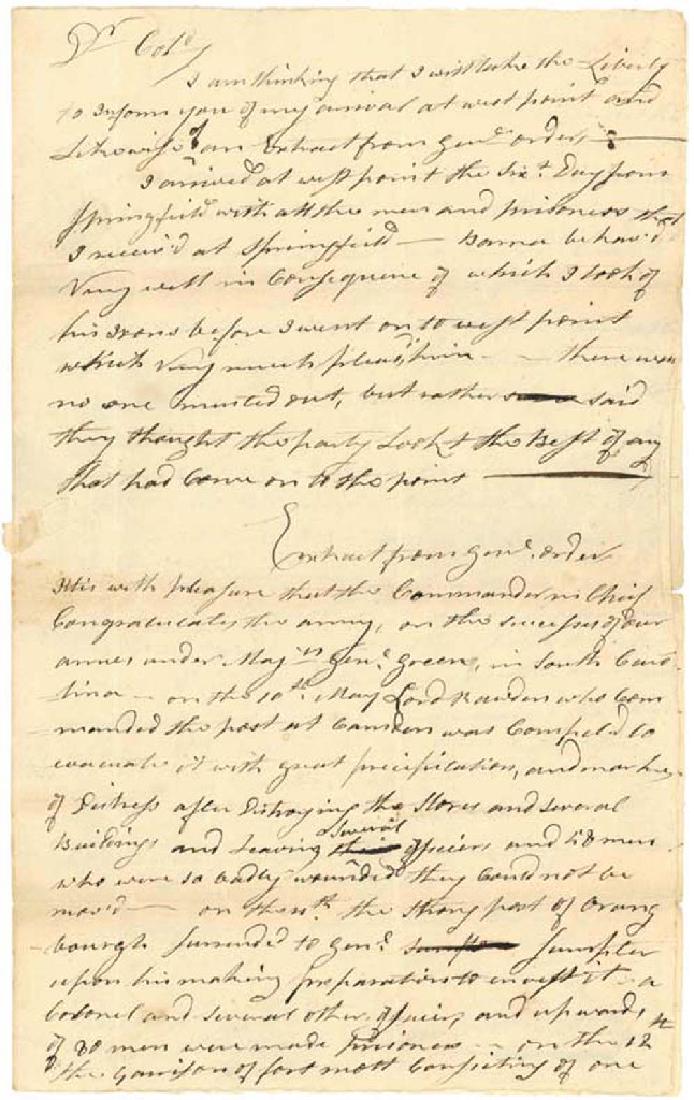 Dr Colo
I am thinking that I will take the Liberty
to Inform you of my arival at west point and
Likewise of an Extract from Genl orders
I arived at west point the Sixt Day from
Springfield with all the men and prisoners that
I receiv'd at Springfield — behav'd
Very well in Consequence of which I took of
his Irons before I went on to west point
which Very much pleas'd him — there was
no one musterd out, but rather said
they thought the party Look'd the Best of any
that had Come on to the point
Extract from Genl order
It is with pleasure that the Commander in Chief
Congratulates the army, on the successes of our
armes under Majr Genl Green, in South Caro
lina — on the 10th May Lord Rawden who Com
manded the post at Camden was Compeld to
evacuate it with great precipitation, and marks
of Distress after Distroying the Stores and Several
Buildings and Leaving Several officers and 58 men
who were so badly wounded they Could not be
mov'd — on the 11th the Strong post of Orang
bourgh Surrended to Genl Sumpter
upon his making preparations to invest it a
Colonel and several other officers, and upwards
of 80 men were made prisoners — on the 12th
the Garrison of fort mott Consisting of one